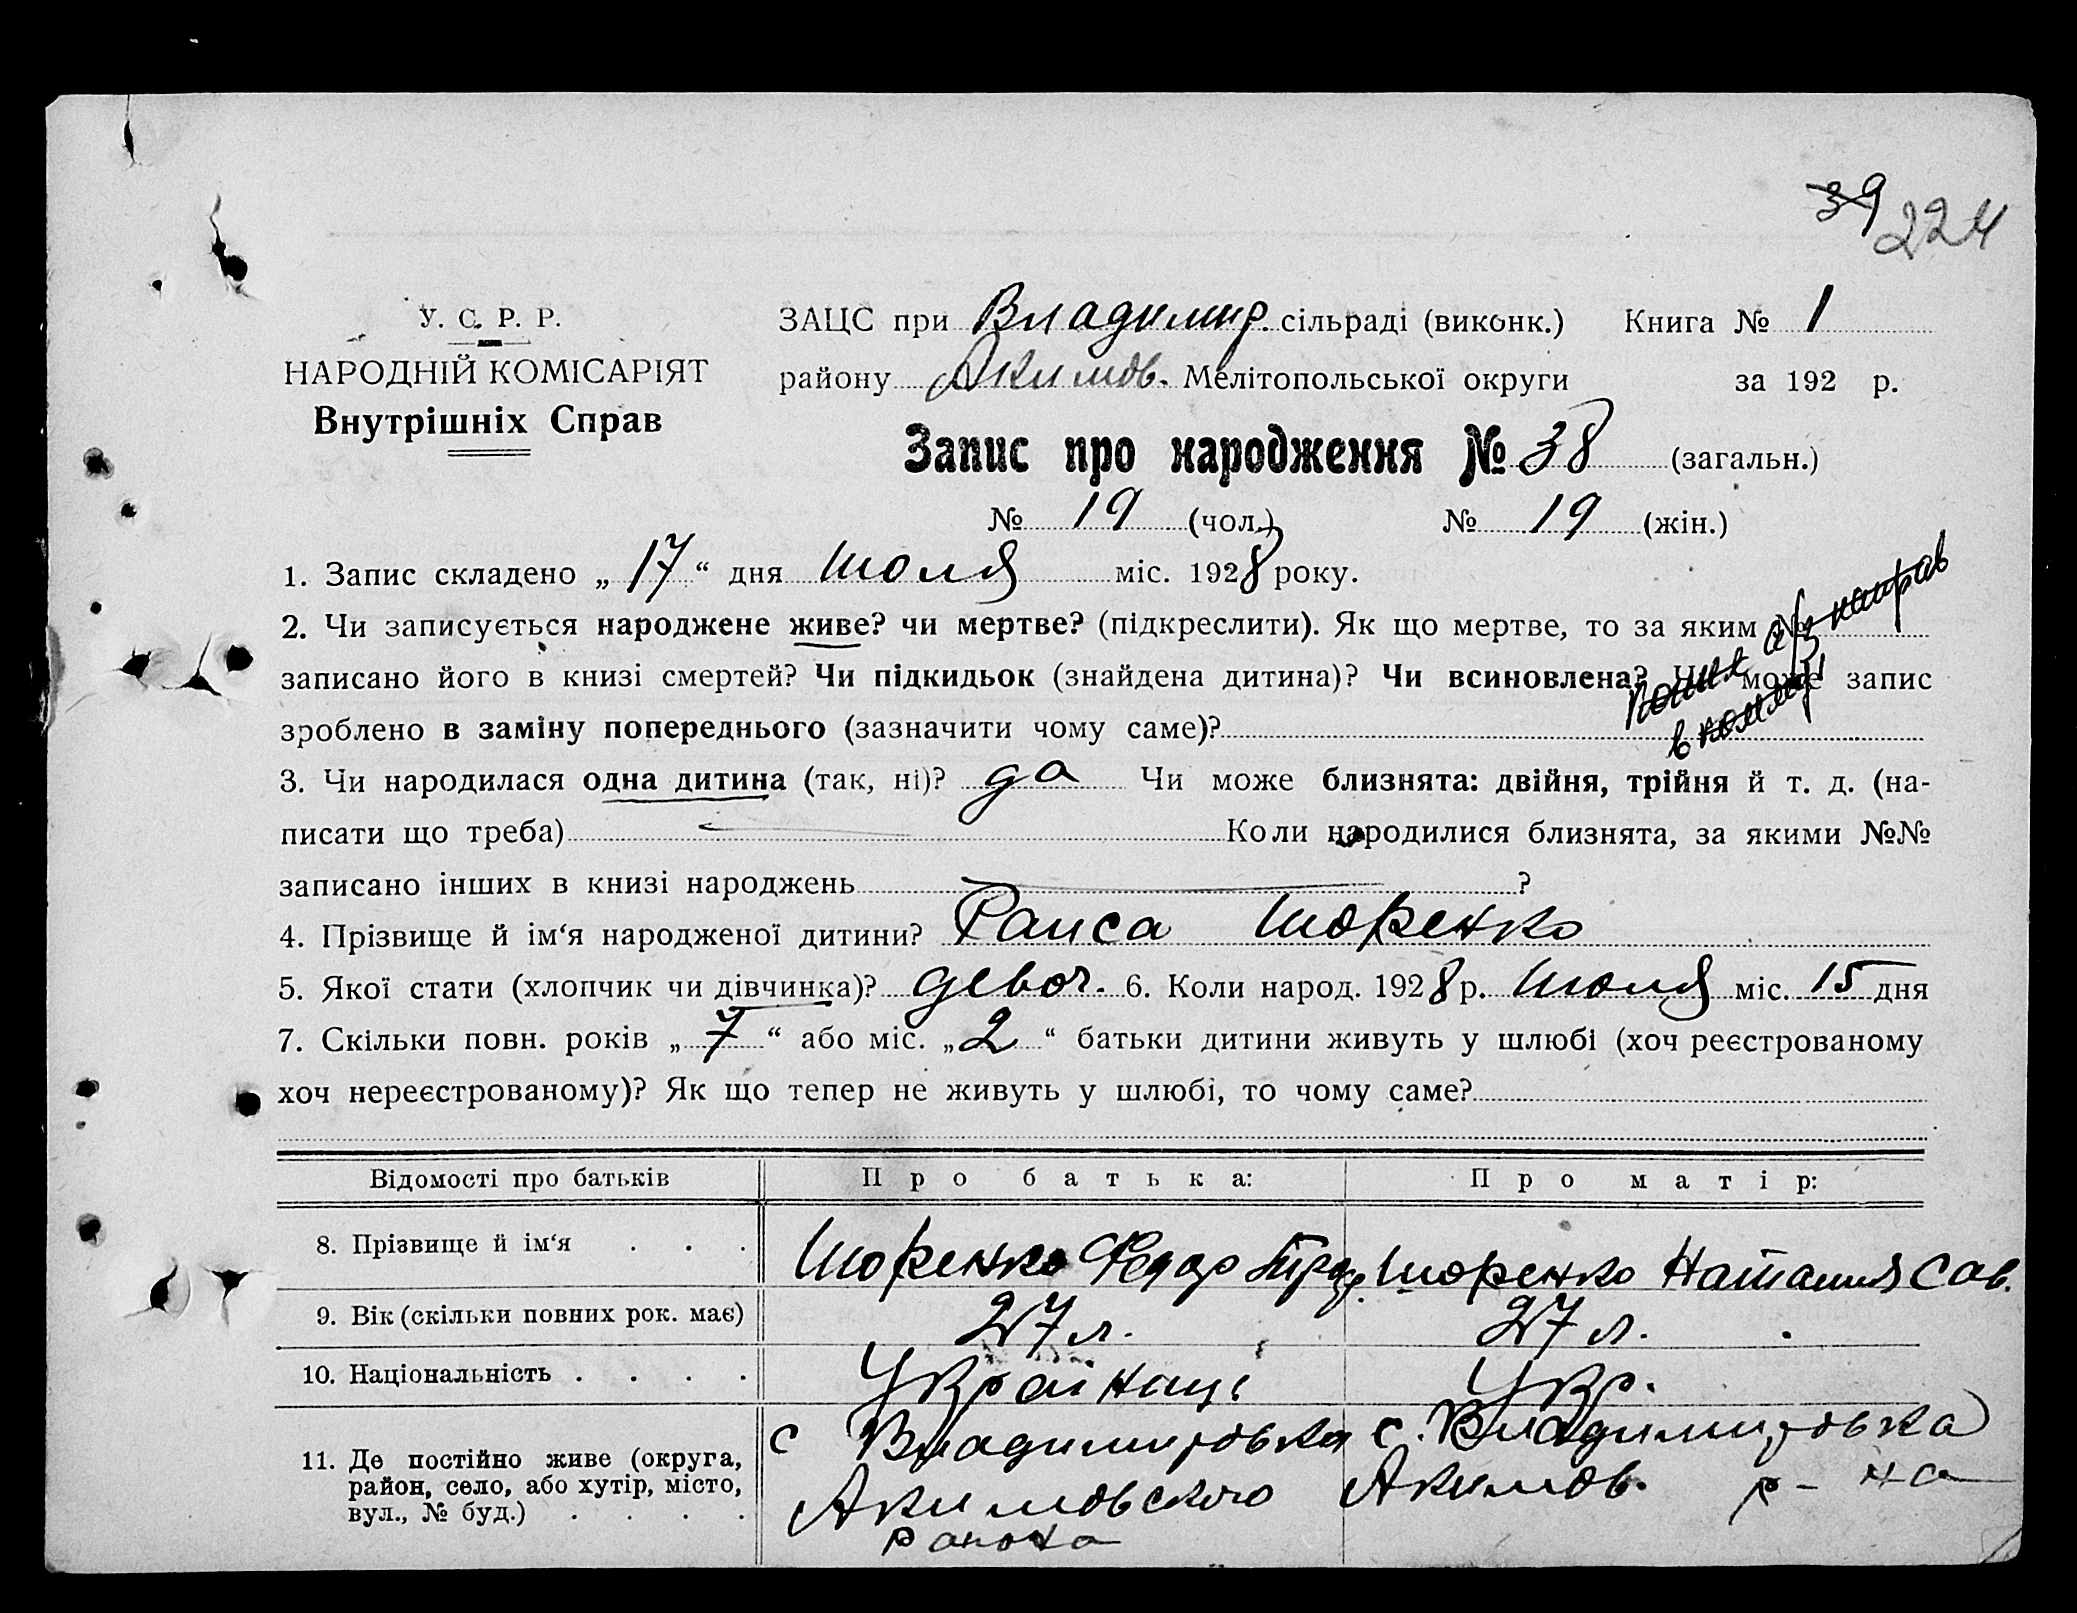 39 224
У. С. Р. Р.
НАРОДНІЙ КОМІСАРІЯТ
Внутрішніх Справ
ЗАЦС при Владимир. сільраді (виконк.) Книга № 1
району Акимов. Мелітопольської округи за 192 р.
Запис про народження № 38 (загальн.)
№ 19 (чол.) № 19 (жін.)
1. Запис складено „ 17 “ дня июля міс. 1928 року.
2. Чи записується народжене живе? чи мертве? (підкреслити). Як що мертве, то за яким №
записано його в книзі смертей? Чи підкидьок (знайдена дитина)? Чи всиновлена? Чи може запис
зроблено в заміну попереднього (зазначити чому саме)?
3. Чи народилася одна дитина (так, ні)? да Чи може близнята: двійня, трійня й т. д. (на-
писати що треба) Коли народилися близнята, за якими №№
записано інших в книзі народжень ?
4. Прізвище й ім‘я народженої дитини? Раиса
5. Якої стати (хлопчик чи дівчинка)? девоч. 6. Коли народ. 1928 р. июля міс. 15 дня
7. Скільки повн. років „ 7 “ або міс. „ 2 “ батьки дитини живуть у шлюбі (хоч реєстрованому
хоч нереєстрованому)? Як що тепер не живуть у шлюбі, то чому саме?
Відомості про батьків Про батька: Про матір:
8. Прізвище й ім‘я . . . Федор Наталия Сав.
9. Вік (скільки повних рок. має) 27 л. 27 л.
10. Національність . . . . Українці Укр.
11. Де постійно живе (округа, район, село, або хутір, місто, вул., № буд.) . . . .
с Владимировка
Акимовского
района
с. Владимировка
Акимов. р-на